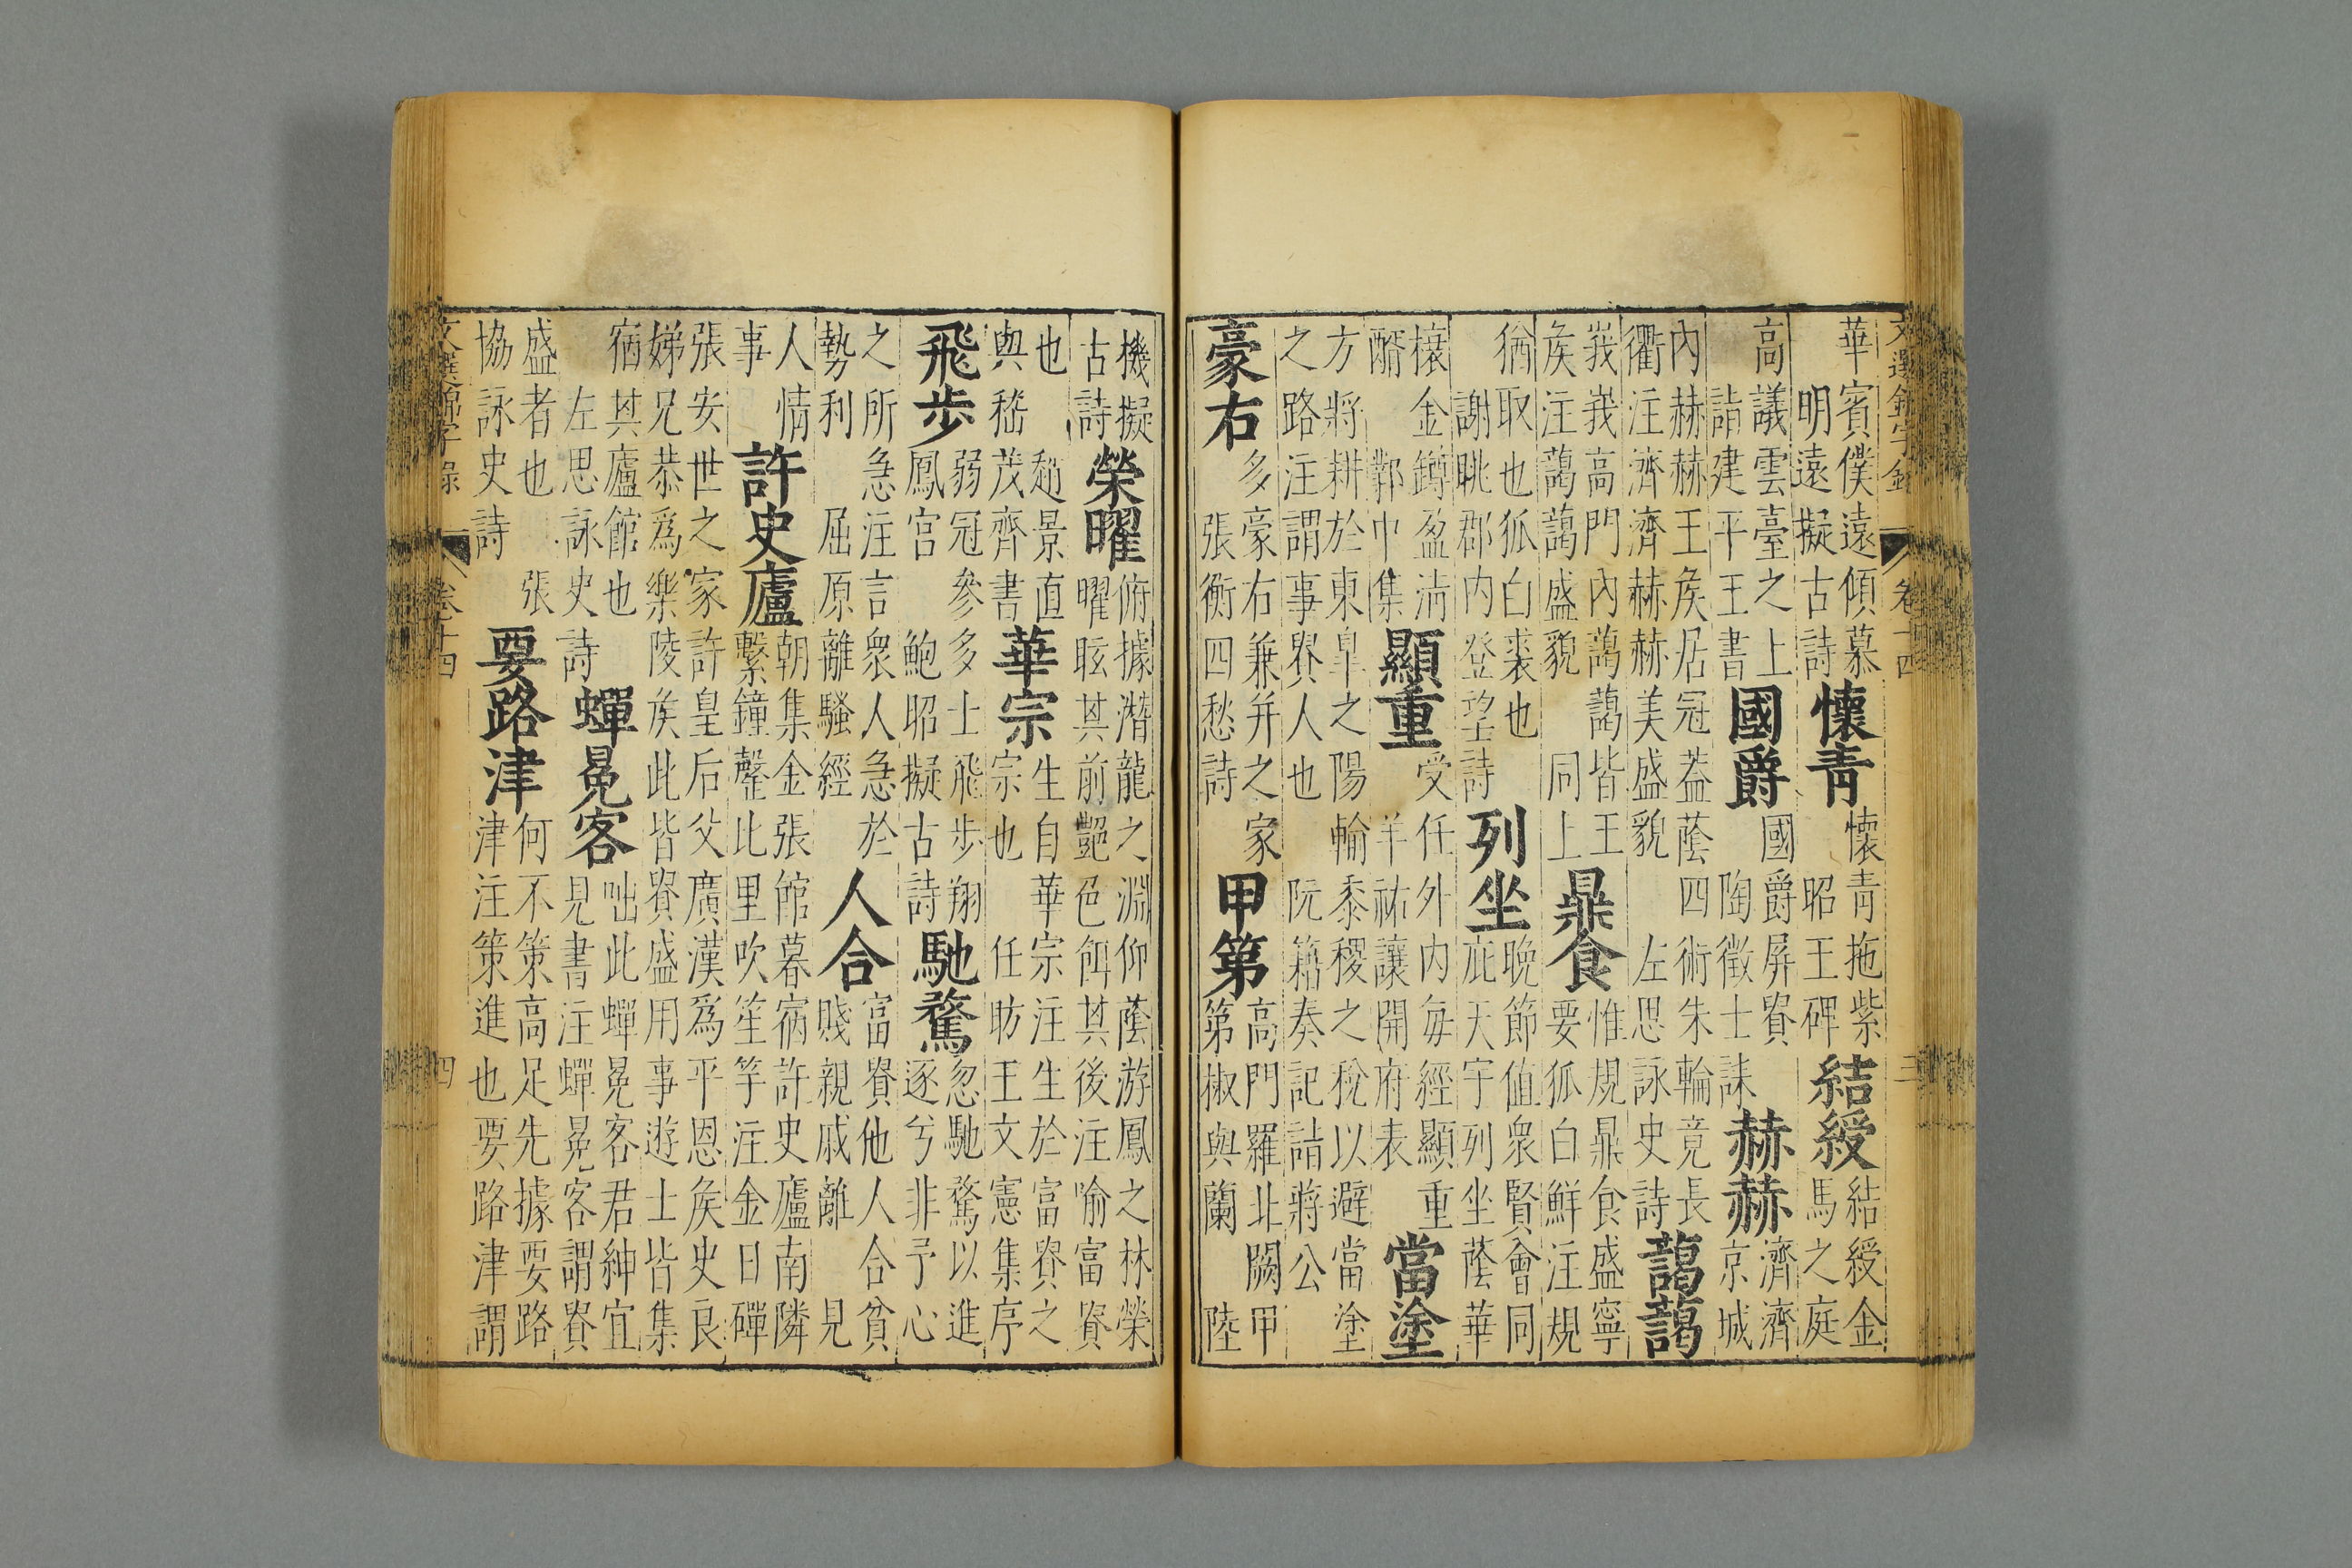 文選錦字錄 卷十四 三
華賓僕遠傾慕
明遠擬古詩
懷青
懷青拖紫
昭王碑
結綬
結綬金
馬之庭
高議雲臺之上
詣建平王書
國爵
國爵屏貴
陶徵士誄
赫赫
濟濟
京城
內赫赫王矦居冠蓋蔭四術朱輪竟長
衢注濟濟赫赫美盛貌 左思詠史詩
藹藹
峩峩高門內藹藹皆王
矦注藹藹盛貌 同上
鼎食
惟規鼎食盛寧
要狐白鮮注規
猶取也狐白裘也
謝眺郡内登望詩
列坐
晚節值衆賢會同
庇天宇列坐蔭華
榱金罇盈淸
酳 鄴中集
顯重
受任外內每經顯重
羊祜讓開府表
當塗
方將耕於東臯之陽輸黍稷之稅以避當塗
之路注謂事畍人也 阮籍奏記詣蔣公
豪右
多豪右兼并之家
張衡四愁詩
甲第
高門羅北闕甲
第椒與蘭 陸
機擬
古詩
榮曜
俯據潛龍之淵仰蔭游鳳之林榮
曜眩其前艶色餌其後注喻富貴
也 趙景直
與嵇茂齊書
華宗
生自華宗注生於富貴之
宗也 任昉王文憲集序
飛步
弱冠參多士飛步翔
鳳宮 鮑昭擬古詩
馳騖
忽馳騖以進
逐兮非予心
之所急注言衆人急於
勢利 屈原離騷經
人合
富貴他人合貧
賤親戚離 見
人情
事
許史廬
朝集金張館暮宿許史廬南隣
繫鐘磬比里吹笙竽注金日磾
張安世之家許皇后父廣漢爲平恩矦史良
娣兄恭爲樂陵矦此皆貴盛用事遊士皆集
宿其廬館也
左思詠史詩
蟬冕客
咄此蟬冕客君紳宜
見書注蟬冕客謂貴
盛者也 張
協詠史詩
要路津
何不策高足先據要路
津注策進也要路津謂
文選錦字錄 卷十四 四